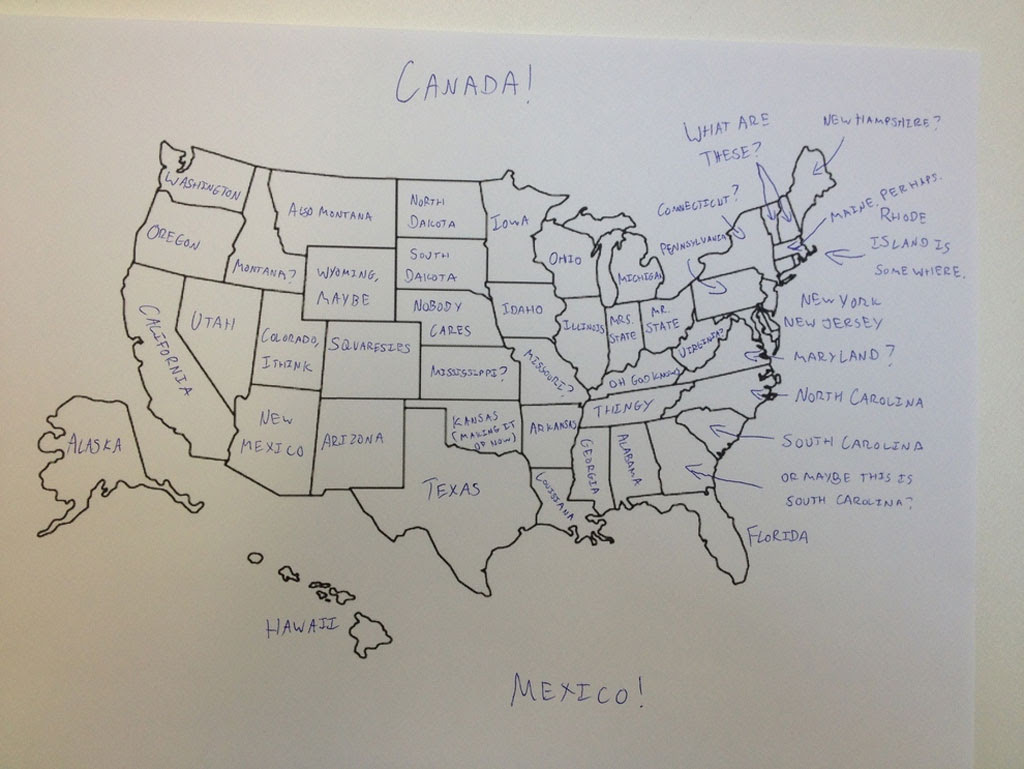 CANADA!
WHAT ARE
THESE?
NEW HAMPSHIRE?
CONNECTICUT?
MAINE, PERHAPS.
RHODE
ISLAND IS
SOMEWHERE.
PENNSYLVANIA
WASHINGTON
ALSO MONTANA
NORTH
DAKOTA
IOWA
OREGON
MONTANA?
WYOMING,
MAYBE
SOUTH
DAKOTA
OHIO
MICHIGAN
NOBODY
CARES
IDAHO
ILLINOIS
MRS.
STATE
MR.
STATE
NEW YORK
NEW JERSEY
VIRGINIA?
MARYLAND?
CALIFORNIA
UTAH
COLORADO,
I THINK
SQUARESIES
MISSISSIPPI?
MISSOURI?
OH GOD KNOWS
THINGY
NORTH CAROLINA
NEW
MEXICO
ARIZONA
KANSAS
(MAKING IT
UP NOW)
ARKANSAS
GEORGIA
ALABAMA
SOUTH CAROLINA
OR MAYBE THIS IS
SOUTH CAROLINA?
ALASKA
TEXAS
LOUISIANA
FLORIDA
HAWAII
MEXICO!